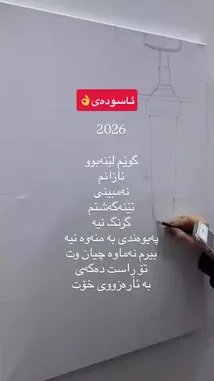 ئاسودەی👌
2026
گوێم لێنەبوو
نازانم
نەمبینی
تێنەگەشتم
گرنگ نیە
پەیوەندی بە منەوە نیە
بیرم نەماوە چیان وت
تۆ ڕاست دەکەی
بە ئارەزووی خۆت